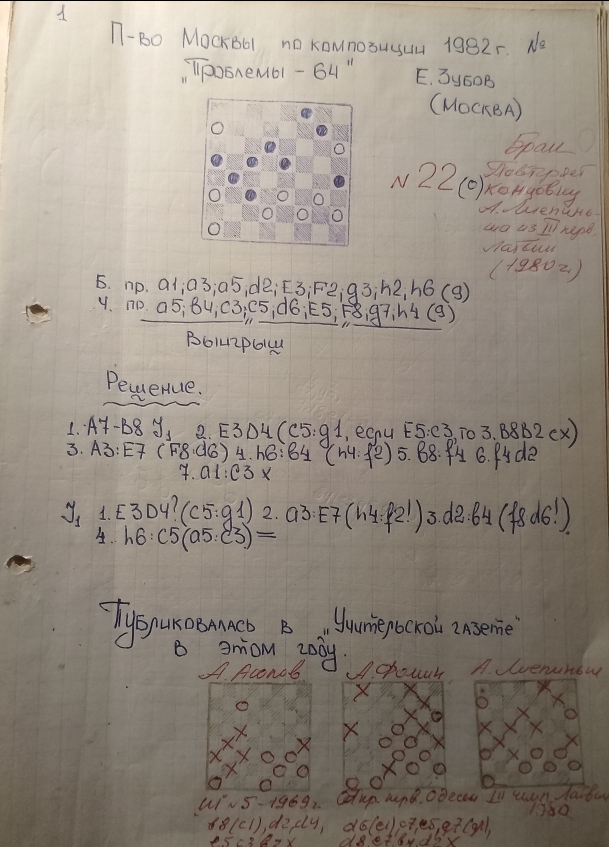 1
П-во Москвы по композиции 1982 г. №
„Проблемы - 64"
Е. Зубов
(Москва)
N 22 (с)
Брак
Повторяет
концовку
А. Лиепинь-
ша из III перв.
Латвии
(1980 г.)
Б. пр. а1; а3; а5; d2; Е3; F2; g3; h2, h6 (9)
Ч. пр. а5; в4, с3; с5, d6; Е5; F8, g7, h4 (9)
Выигрыш
Решение.
1. А7-В8 J₁ 2. Е3D4 (С5:g1, если Е5:с3, то 3. В8В2 сх)
3. А3:Е7 (F8:d6) 4. h6:в4 (h4:f2) 5. в8:f4 6. f4d2
7. а1:с3 х
J₁ 1. Е3D4? (С5:g1) 2. а3:Е7 (h4:f2!) 3. d2:в4 (f8d6!)
4. h6:с5 (а5:с3) =
Публиковалась в „Учительской газете"
в этом году.
А. Фомин
А. Лиепиньш
Ш N 5 - 1969 г.
III чемп. Латвии
1980
в8(с1), d2, d4,